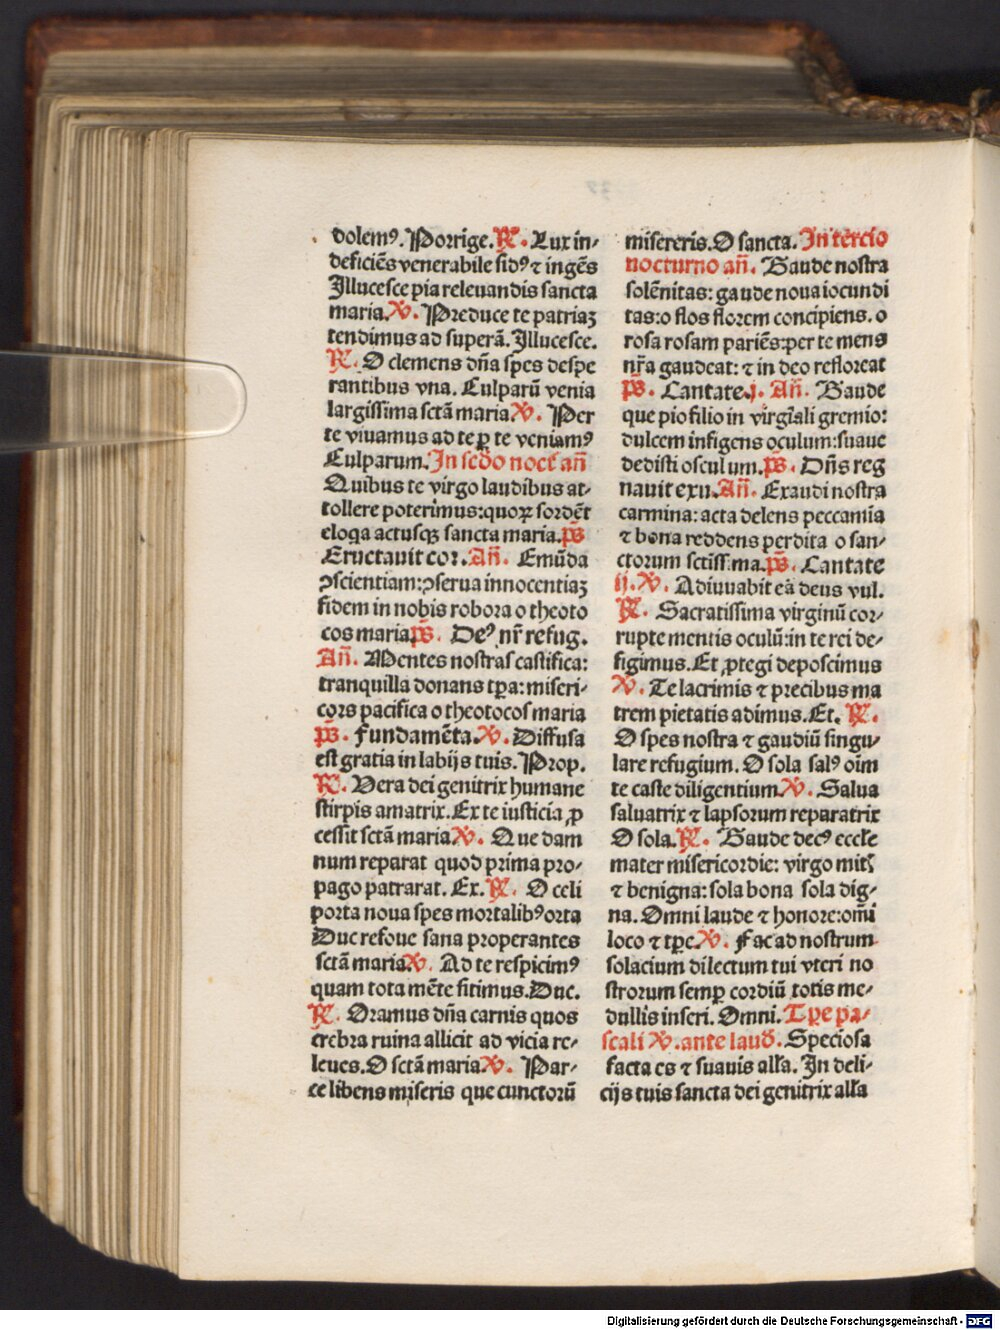 dolemꝰ. Porrige. ℟. Lux in-
deficiēs venerabile sidꝰ ⁊ ingēs
Illucesce pia releuandis sancta
maria. ℣. Preduce te patriaꝫ
tendimus ad superā. Illucesce.
℟. O clemens dn̄a spes despe
rantibus vna. Culparū venia
largissima sctā maria ℣. Per
te viuamus ad te ꝑ te veniamꝰ
Culparum. In scdo noct̄ an̄
Quibus te virgo laudibus at-
tollere poterimus: quoꝝ sordēt
eloga actusqꝫ sancta maria. ps̄
Eructauit cor. An̄. Emūda
ꝯscientiam: ꝯserua innocentiaꝫ
fidem in nobis robora o theoto
cos maria ps̄. Deꝰ nr̄ refug.
An̄. Mentes nostras castifica:
tranquilla donans tꝑa: miseri-
cors pacifica o theotocos maria
ps̄. Fundamēta. ℣. Diffusa
est gratia in labijs tuis. Prop.
℟. Vera dei genitrix humane
stirpis amatrix. Ex te iusticia ꝓ
cessit sctā maria ℣. Que dam
num reparat quod prima pro-
pago patrarat. Ex. ℟. O celi
porta noua spes mortalibꝰ orta
Duc refoue sana properantes
sctā maria ℣. Ad te respicimꝰ
quam tota mēte sitimus. Duc.
℟. Oramus dn̄a carnis quos
crebra ruina allicit ad vicia re-
leues. O sctā maria ℣. Par-
ce libens miseris que cunctorū
misereris. O sancta. In tercio
nocturno an̄. Gaude nostra
solēnitas: gaude noua iocundi
tas: o flos florem concipiens. o
rosa rosam pariēs: per te mens
nr̄a gaudeat: ⁊ in deo refloreat
ps̄. Cantate. j. An̄. Gaude
que pio filio in virgīali gremio:
dulcem infigens oculum: suaue
dedisti osculum. ps̄. Dn̄s reg
nauit exu. An̄. Exaudi nostra
carmina: acta delens peccamīa
⁊ bona reddens perdita o san-
ctorum sctissima. ps̄. Cantate
ij. ℣. Adiuuabit eā deus vul.
℟. Sacratissima virginū cor-
rupte mentis oculū: in te rei de-
figimus. Et ꝓtegi deposcimus
℣. Te lacrimis ⁊ precibus ma
trem pietatis adimus. Et. ℟.
O spes nostra ⁊ gaudiū singu-
lare refugium. O sola salꝰ oīm
te caste diligentium. ℣. Salua
saluatrix ⁊ lapsorum reparatrix
O sola. ℟. Gaude decꝰ eccle
mater misericordie: virgo mitꝭ
⁊ benigna: sola bona sola dig-
na. Omni laude ⁊ honore: omi
loco ⁊ tꝑe. ℣. Fac ad nostrum
solacium dilectum tui vteri no
strorum semꝑ cordiū totis me-
dullis inseri. Omni. Tꝑe pa-
scali ℣. ante laud̄. Speciosa
facta es ⁊ suauis alla. In deli-
cijs tuis sancta dei genitrix alla
Digitalisierung gefördert durch die Deutsche Forschungsgemeinschaft - DFG